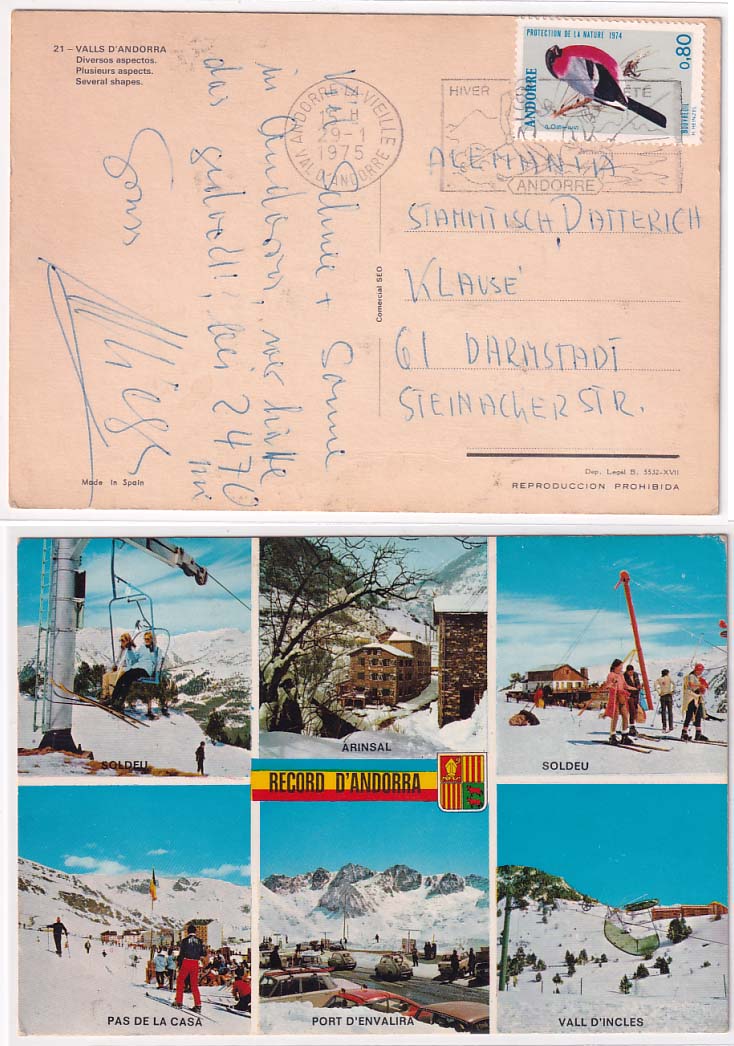 21 – VALLS D'ANDORRA
Diversos aspectos.
Plusieurs aspects.
Several shapes.
Viel Schnee + Sonne
in Andorra, wer hätte
das gedacht! bei 2470
m
ANDORRE-LA-VIEILLE
29-1
1975
VAL D'ANDORRE
HIVER
ÉTÉ
ANDORRE
PROTECTION DE LA NATURE 1974
0,80
ANDORRE
BOUVREUIL
H. HEINZEL
Comercial SEO
ALEMANIA
STAMMTISCH DATTERICH
KLAUSE
61 DARMSTADT
STEINACKERSTR.
Made in Spain
Dep. Legal B. 5532-XVII
REPRODUCCION PROHIBIDA
SOLDEU
ARINSAL
SOLDEU
RECORD D'ANDORRA
PAS DE LA CASA
PORT D'ENVALIRA
VALL D'INCLES